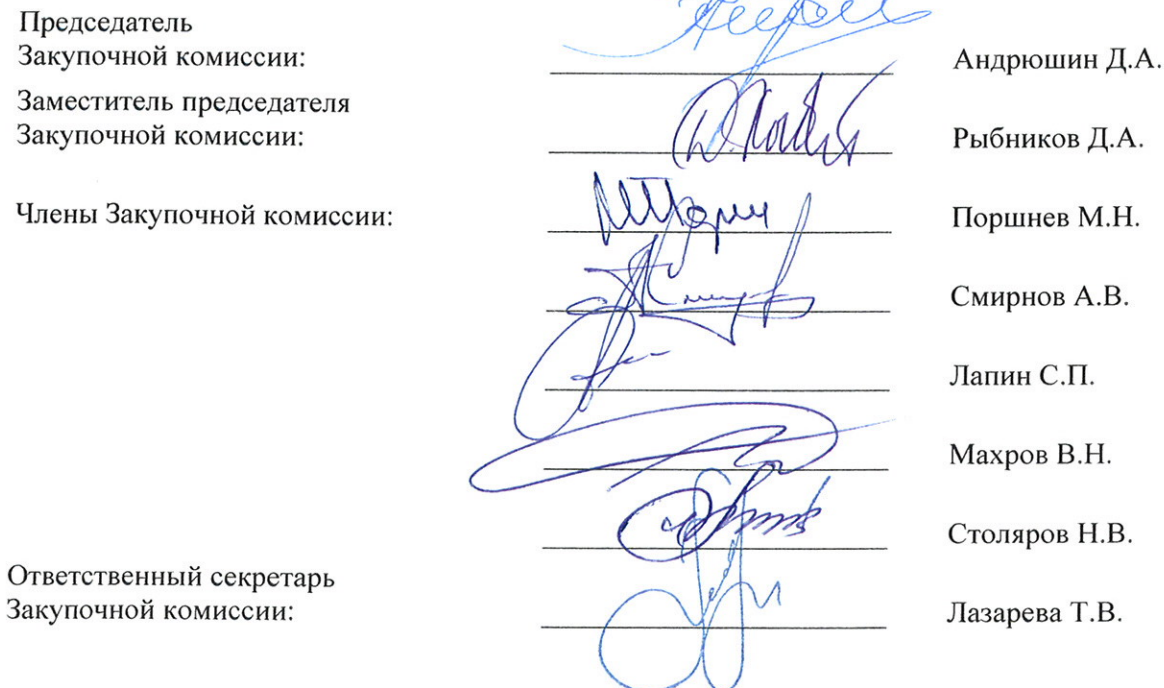 Председатель
Закупочной комиссии:
Андрюшин Д.А.
Заместитель председателя
Закупочной комиссии:
Рыбников Д.А.
Члены Закупочной комиссии:
Поршнев М.Н.
Смирнов А.В.
Лапин С.П.
Махров В.Н.
Столяров Н.В.
Ответственный секретарь
Закупочной комиссии:
Лазарева Т.В.